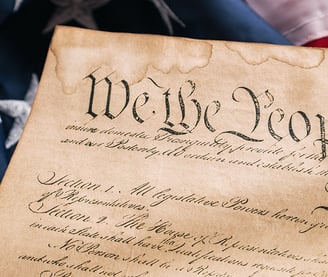 We the Peop
insure domestic Tranquility, provide for the
and our Posterity, do ordain and establish th
Section 1. All legislative Powers herein gr
of Representatives.
Section 2. The House of Representatives sha
in each State shall have the Qualifications requisite for
No Person shall be a Rep
and who shall not